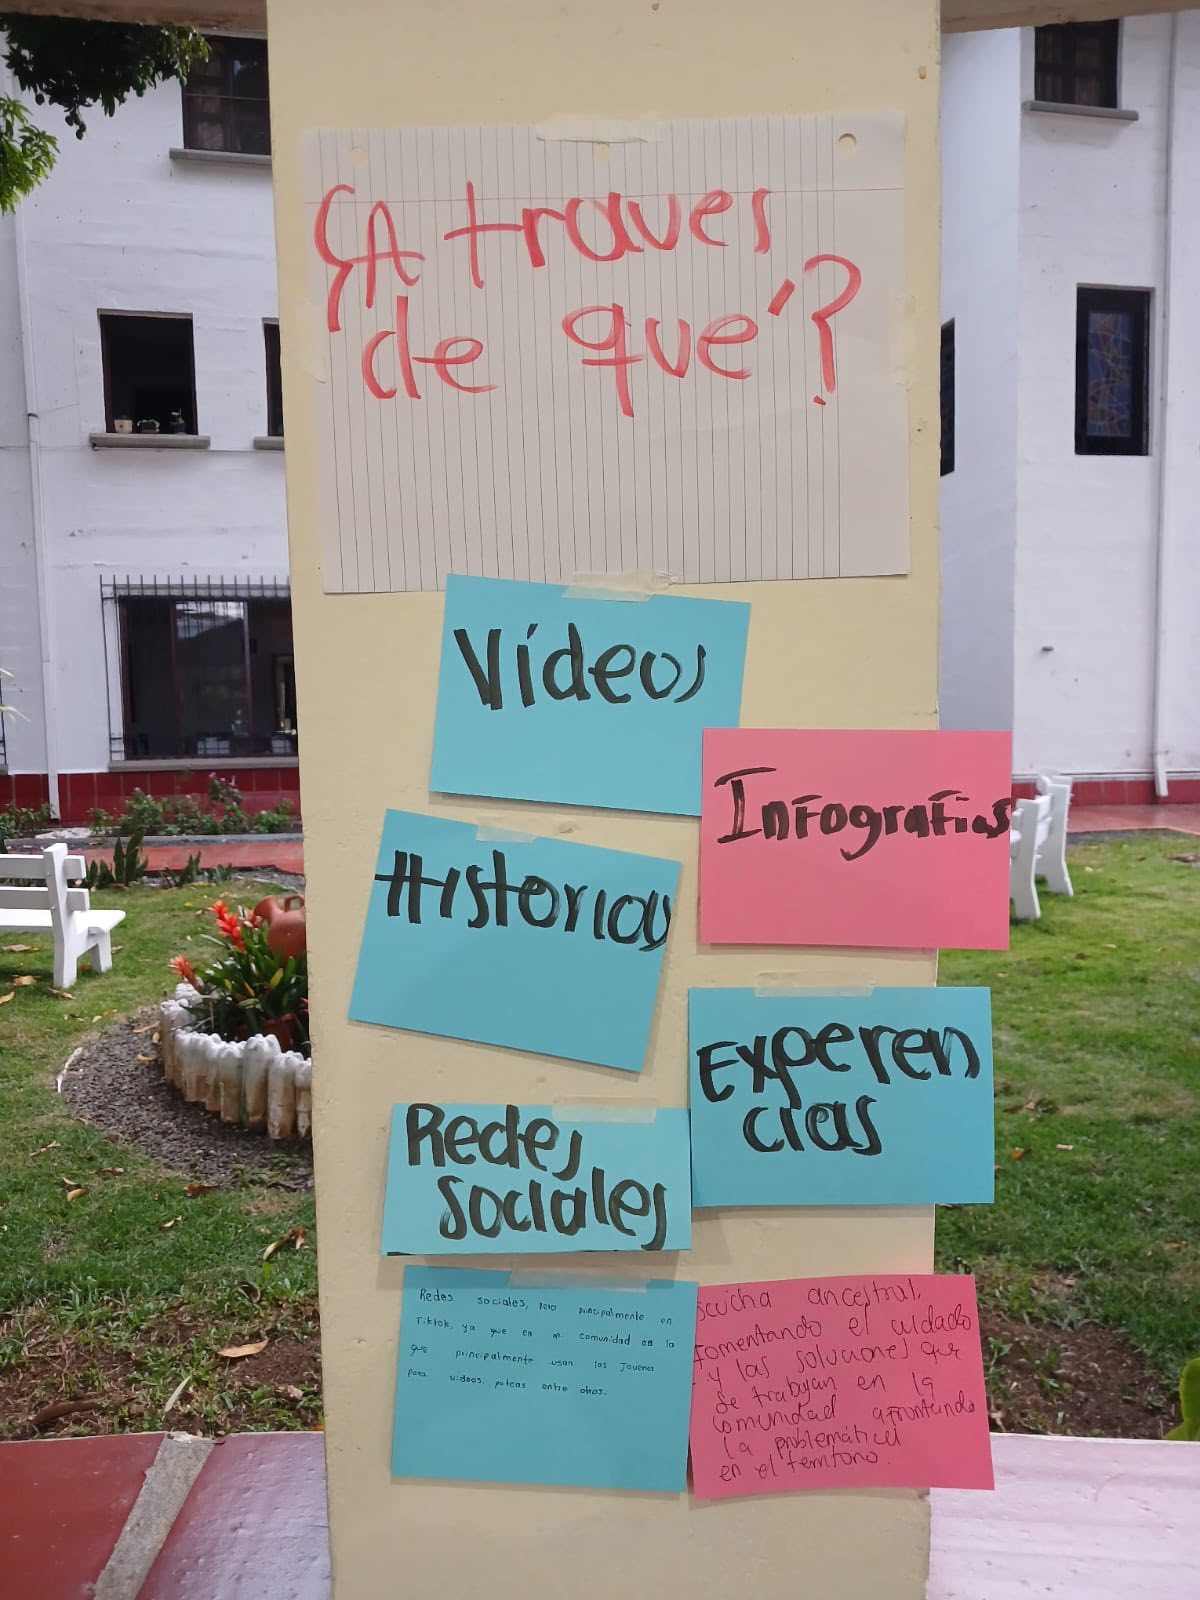 ¿A traves
de qué?
Vídeos
Infografías
Historias
Experen
cias
Redes
sociales
Redes sociales, pero principalmente en
Tiktok, ya que en mi comunidad es la
que principalmente usan los Jovenes
para videos, poteas entre otros.
scucha ancestral,
fomentando el cuidado
y las soluciones que
se trabajan en la
comunidad afrontando
la problemática
en el territorio.